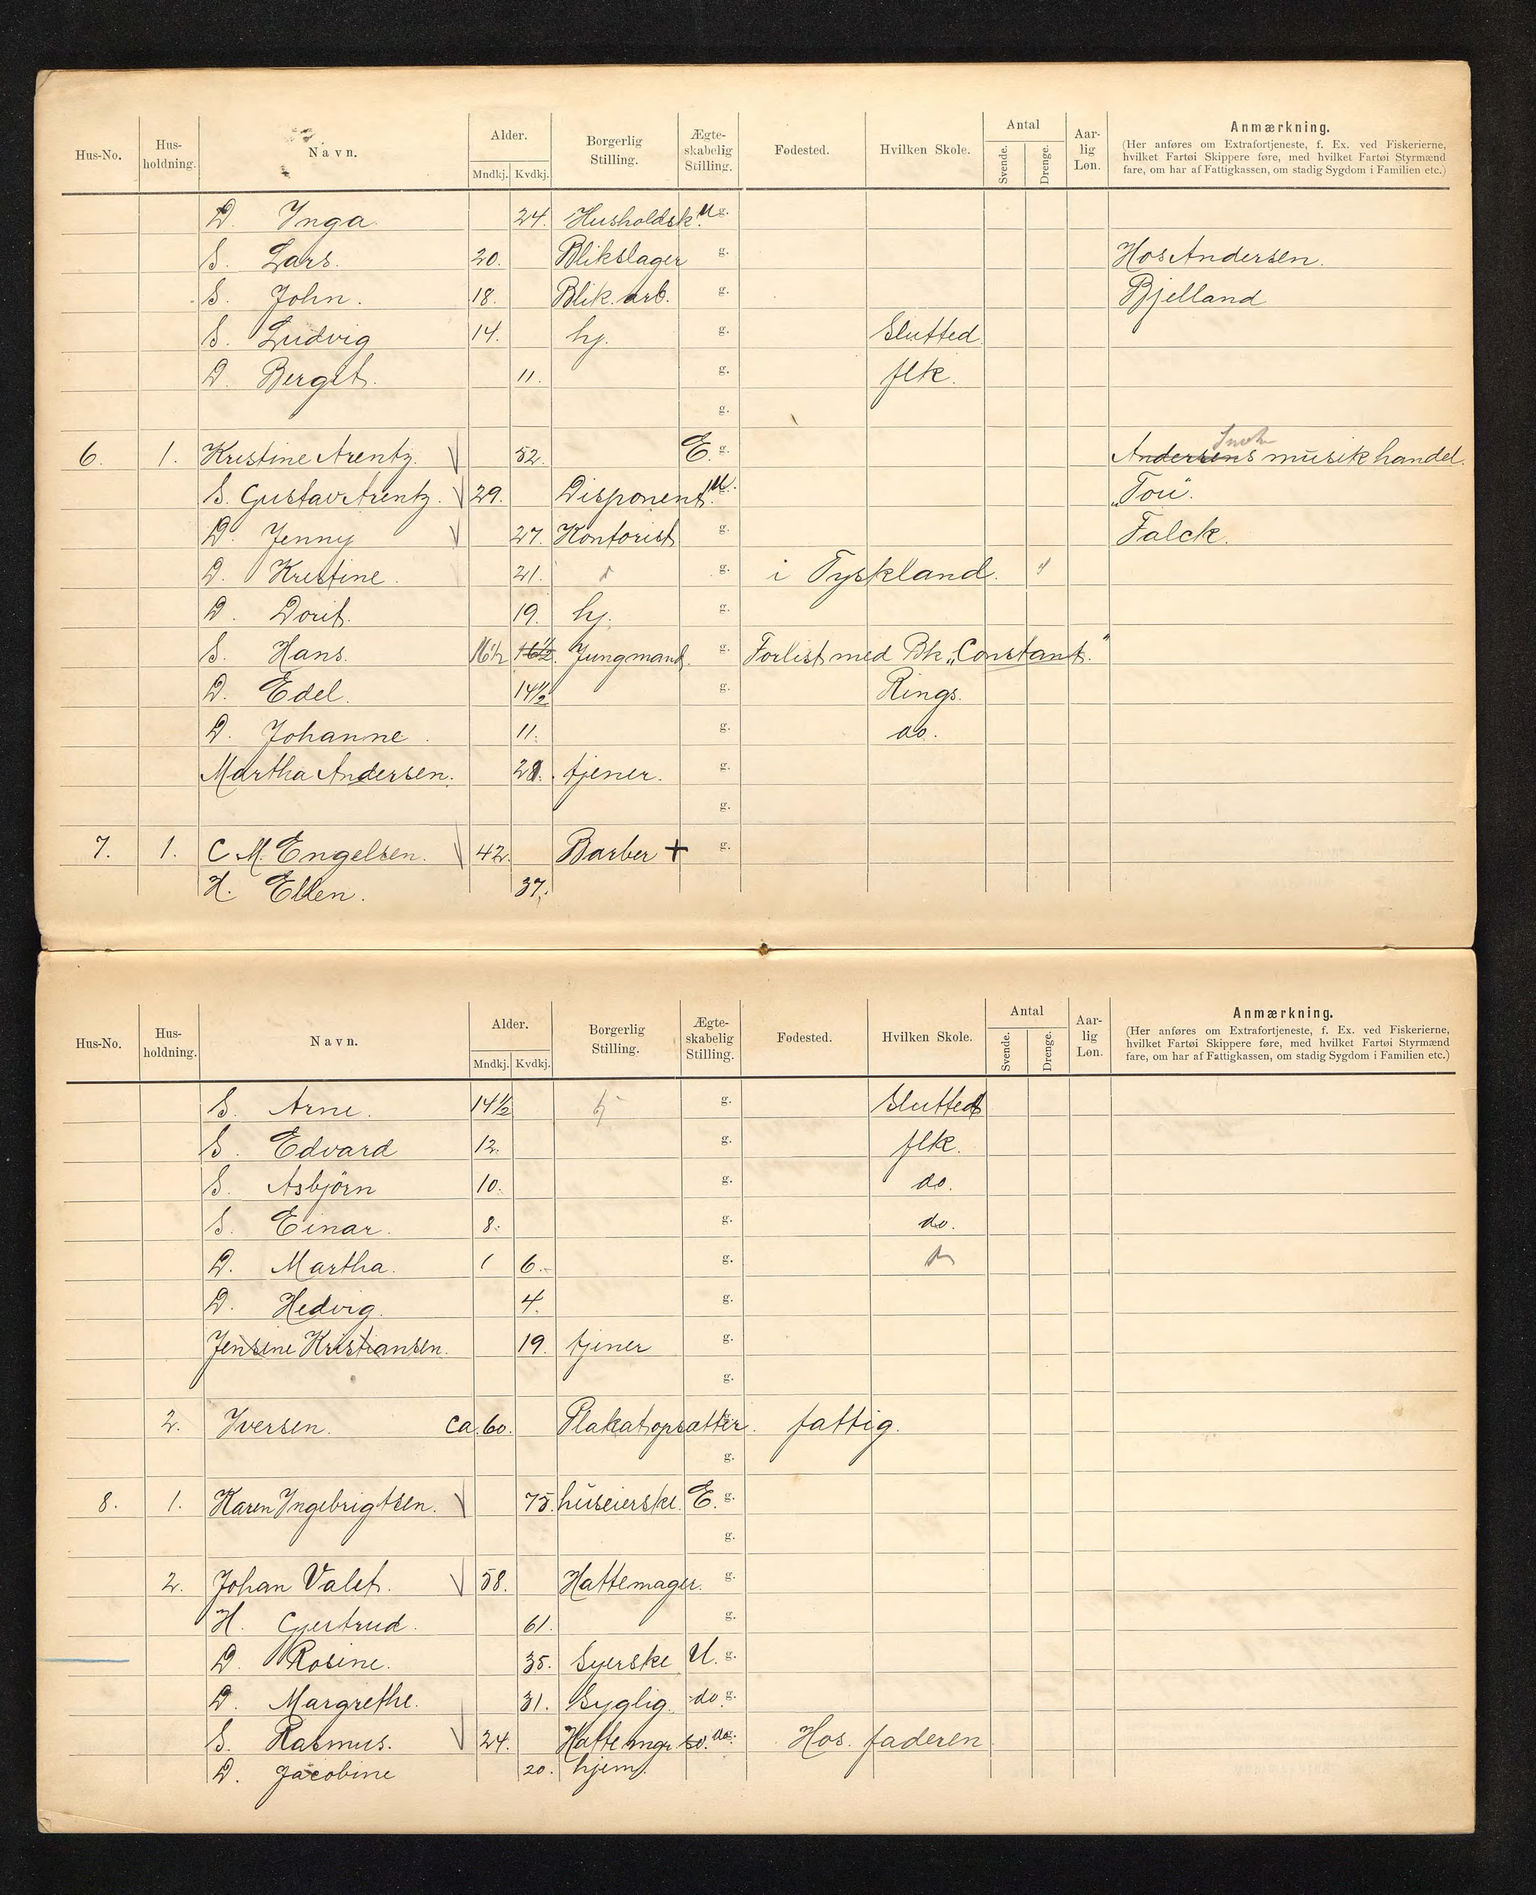 Hus-No. Hus-holdning. Navn. Alder. Mndkj. Kvdkj. Borgerlig Stilling. Ægte-skabelig Stilling. Fødested. Hvilken Skole. Antal Svende. Drenge. Aar-lig Løn. Anmærkning.
(Her anføres om Extrafortjeneste, f. Ex. ved Fiskerierne,
hvilket Fartøi Skippere føre, med hvilket Fartøi Styrmænd
fare, om har af Fattigkassen, om stadig Sygdom i Familien etc.)
D. Inga. 24. Husholdsk. U g.
S. Lars. 20. Blikslager g. Hos Andersen.
S. John. 18. Blik. arb. g. Bjelland
S. Ludvig 14. hj. g. Slutted
D. Berget. 11. g. flk.
g.
6. 1. Kristine Arentz. 52. E. g. Andersens musikhandel.
S. Gustav Arentz. 29. Disponent U. „Tou“.
D. Jenny 27. Kontorist g. Falck.
D. Kristine. 21. g. i Tyskland.
D. Dorit. 19. hj. g.
S. Hans. 16½ 16½. Jungmand. g. Forlist med Bk „Constant.“
D. Edel. 14½ g. Rings.
D. Johanne. 11. g. do.
Martha Andersen. 21. tjener. g.
g.
7. 1. C. M. Engelsen. 42. Barber + g.
H. Ellen. 37.
Hus-No. Hus-holdning. Navn. Alder. Mndkj. Kvdkj. Borgerlig Stilling. Ægte-skabelig Stilling. Fødested. Hvilken Skole. Antal Svende. Drenge. Aar-lig Løn. Anmærkning.
(Her anføres om Extrafortjeneste, f. Ex. ved Fiskerierne,
hvilket Fartøi Skippere føre, med hvilket Fartøi Styrmænd
fare, om har af Fattigkassen, om stadig Sygdom i Familien etc.)
S. Arne. 14½ g. Slutted
S. Edvard 12. g. flk.
S. Asbjörn 10. g. do.
S. Einar. 8. g. do.
D. Martha. 6. g.
D. Hedvig. 4. g.
Jensine Kristiansen. 19. tjener g.
g.
2. Iversen. ca. 60. Plakatopsætter. fattig.
g.
8. 1. Karen Ingebrigtsen. 75. huseierske. E. g.
g.
2. Johan Valet. 58. Hattemager. g.
H. Gjertrud. 61. g.
D. Rosine. 35. Syerske U. g.
D. Margrethe. 31. Syglig. do. g.
S. Rasmus. 24. Hattemgr sv. do. g. Hos faderen
D. Jacobine 20. hjem.